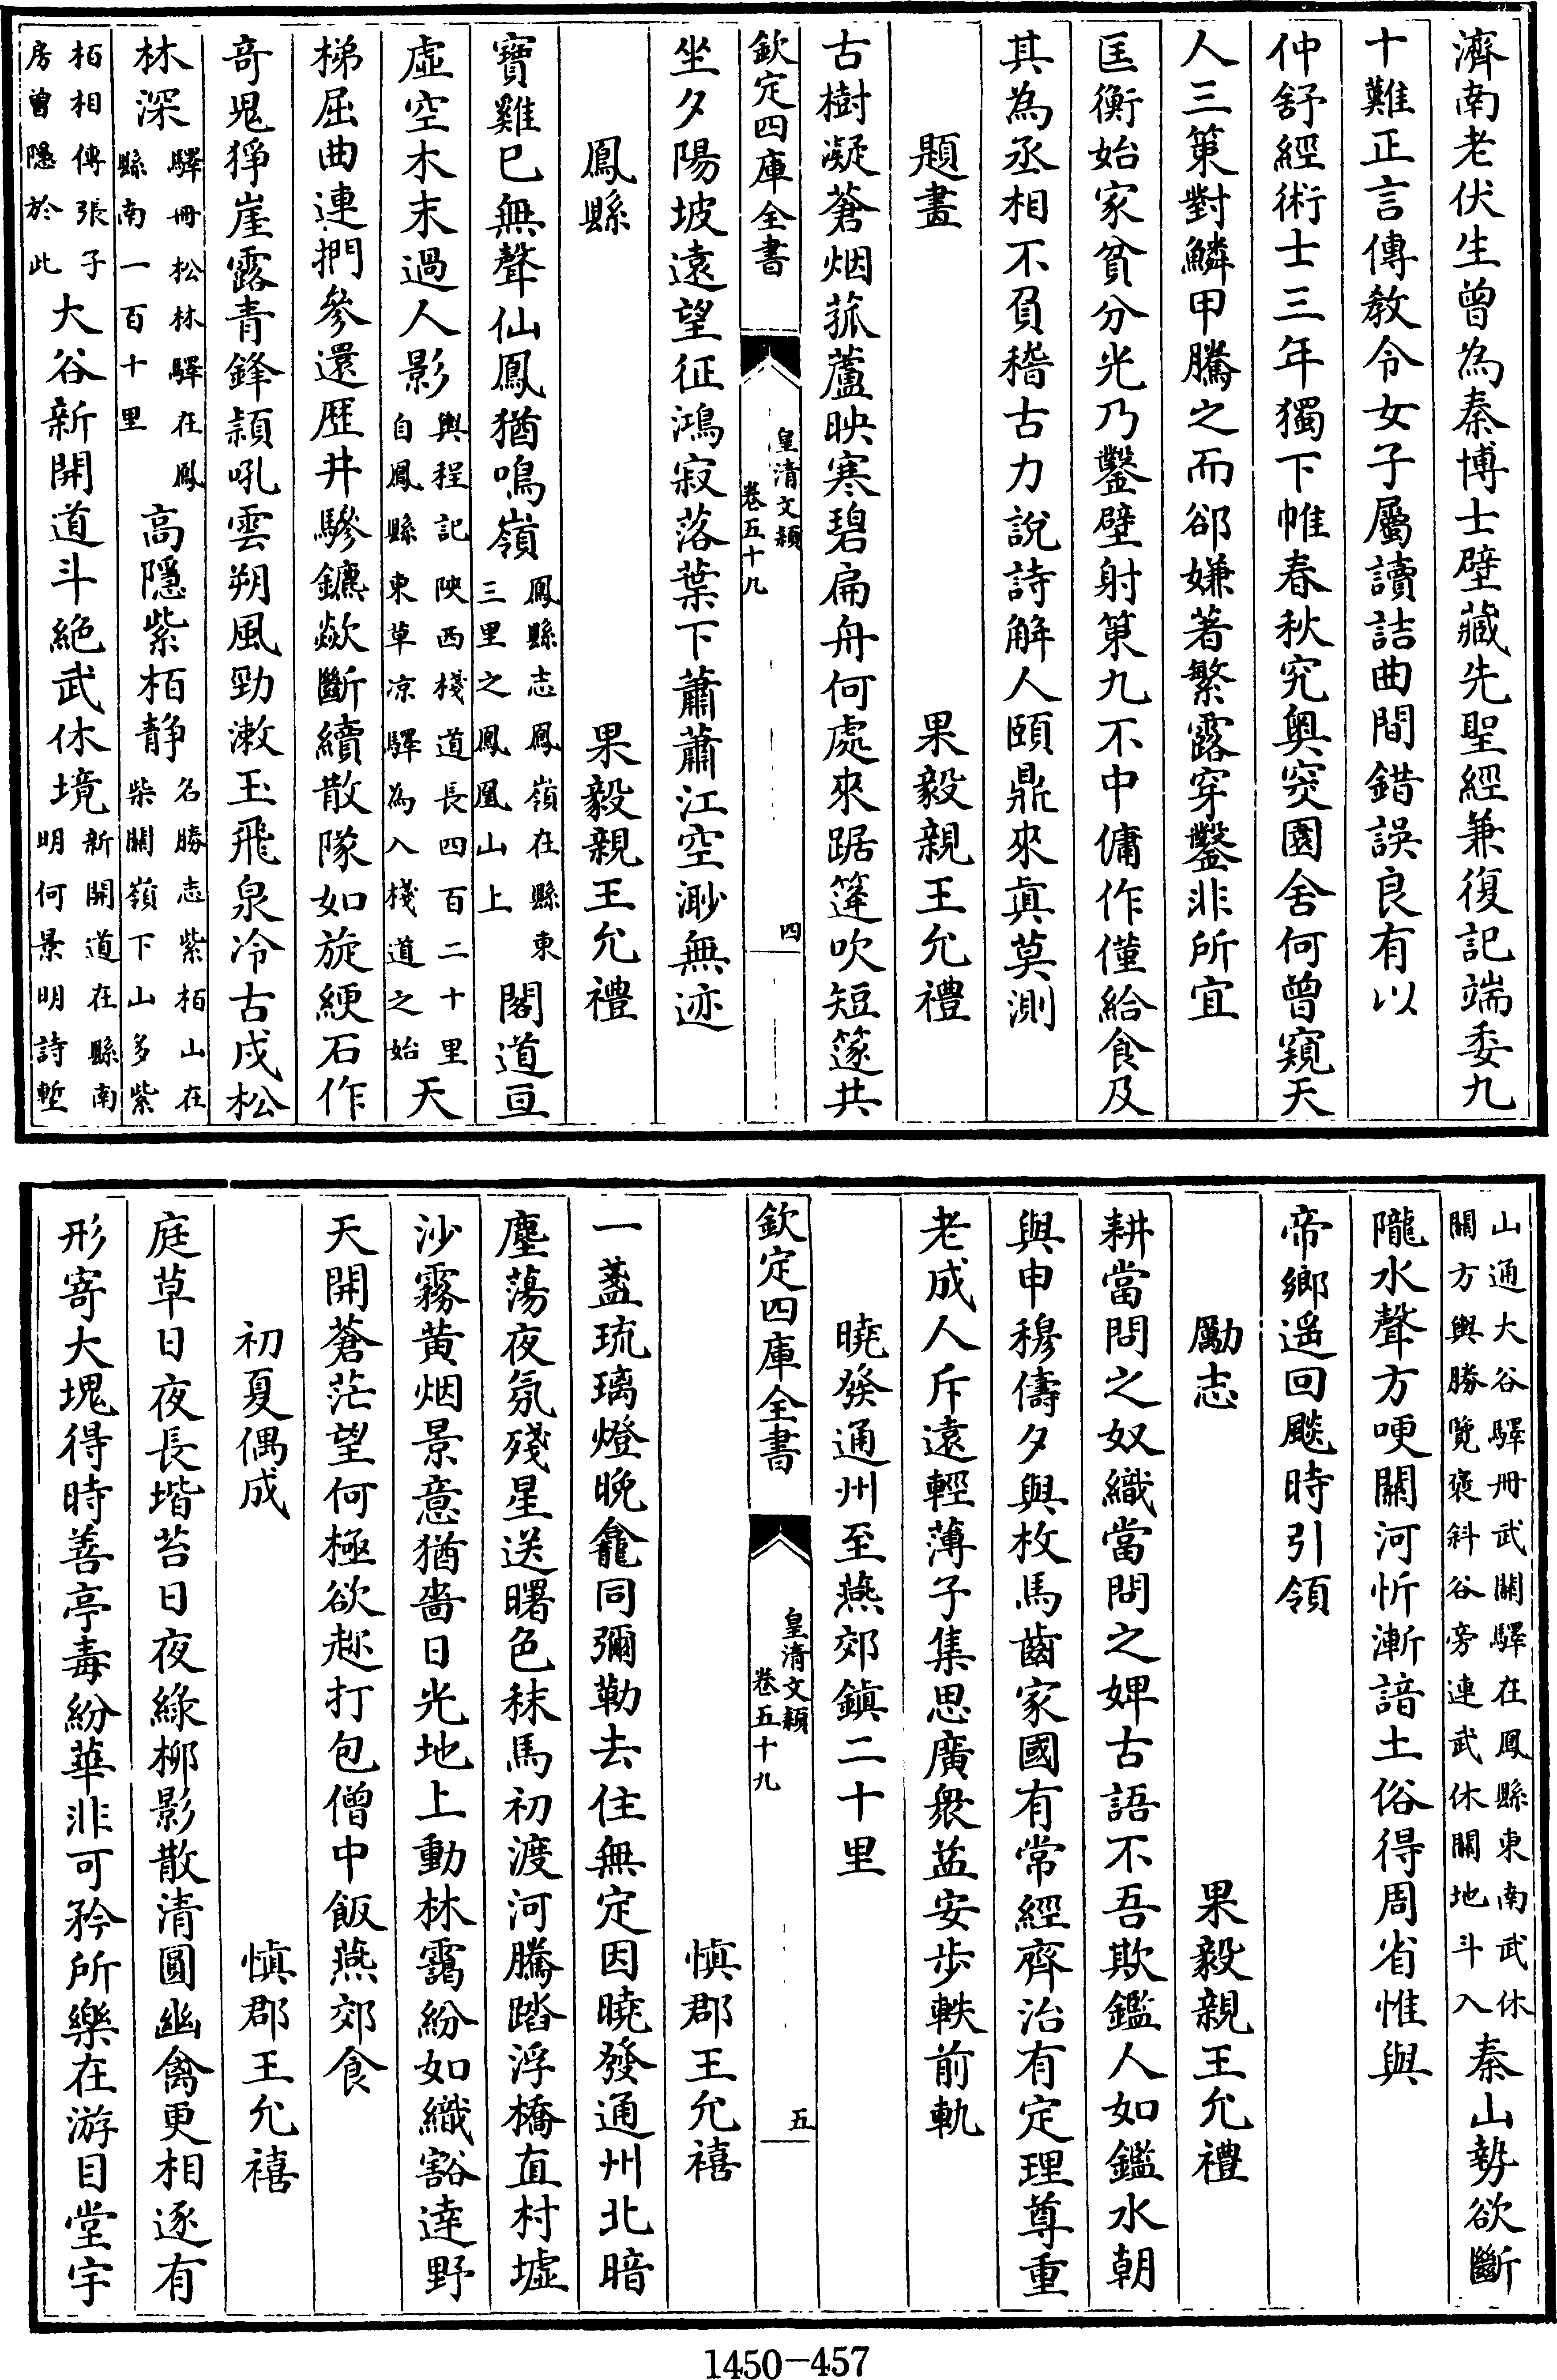 濟南老伏生曾為秦博士壁藏先聖經兼復記端委九
十難正言傳教令女子屬讀詰曲間錯誤良有以
仲舒經術士三年獨下帷春秋究奥窔園舍何曾窺天
人三策對鱗甲騰之而郤嫌著繁露穿鑿非所宜
匡衡始家貧分光乃鑿壁射策九不中傭作僅給食及
其為丞相不負稽古力說詩解人頤鼎來真莫測
題畫
果毅親王允禮
古樹凝蒼烟菰蘆映寒碧扁舟何處來踞篷吹短篴共
欽定四庫全書
皇清文穎
卷五十九
四
坐夕陽坡遠望征鴻寂落葉下蕭蕭江空渺無迹
鳳縣
果毅親王允禮
寶雞已無聲仙鳳猶鳴嶺鳳縣志鳳嶺在縣東三里之鳳凰山上閣道亘
虛空木末過人影輿程記陜西棧道長四百二十里自鳳縣東草凉驛為入棧道之始天
梯屈曲連捫參還歷井驂鑣歘斷續散隊如旋綆石作
竒鬼猙崖露青鋒潁吼雲朔風勁漱玉飛泉冷古戍松
林深驛冊松林驛在鳳縣南一百十里高隱紫栢静名勝志紫栢山在柴關嶺下山多紫
栢相傳張子房曾隱於此大谷新開道斗絕武休境新開道在縣南明何景明詩塹
山通大谷驛冊武關驛在鳳縣東南武休關方輿勝覽褒斜谷旁連武休關地斗入秦山勢欲斷
隴水聲方哽關河忻漸諳土俗得周省惟與
帝鄉遥回飈時引領
勵志
果毅親王允禮
耕當問之奴織當問之婢古語不吾欺鑑人如鑑水朝
與申穆儔夕與枚馬齒家國有常經齊治有定理尊重
老成人斥遠輕薄子集思廣衆益安步軼前軌
曉發通州至燕郊鎮二十里
欽定四庫全書
皇清文穎
卷五十九
五
慎郡王允禧
一盞琉璃燈晚龕同彌勒去住無定因曉發通州北暗
塵蕩夜氛殘星送曙色秣馬初渡河騰踏浮橋直村墟
沙霧黃烟景意猶嗇日光地上動林靄紛如織豁達野
天開蒼茫望何極欲趁打包僧中飯燕郊食
初夏偶成
慎郡王允禧
庭草日夜長堦苔日夜綠柳影散清圓幽禽更相逐有
形寄大塊得時善亭毒紛華非可矜所樂在游目堂宇
1450-457